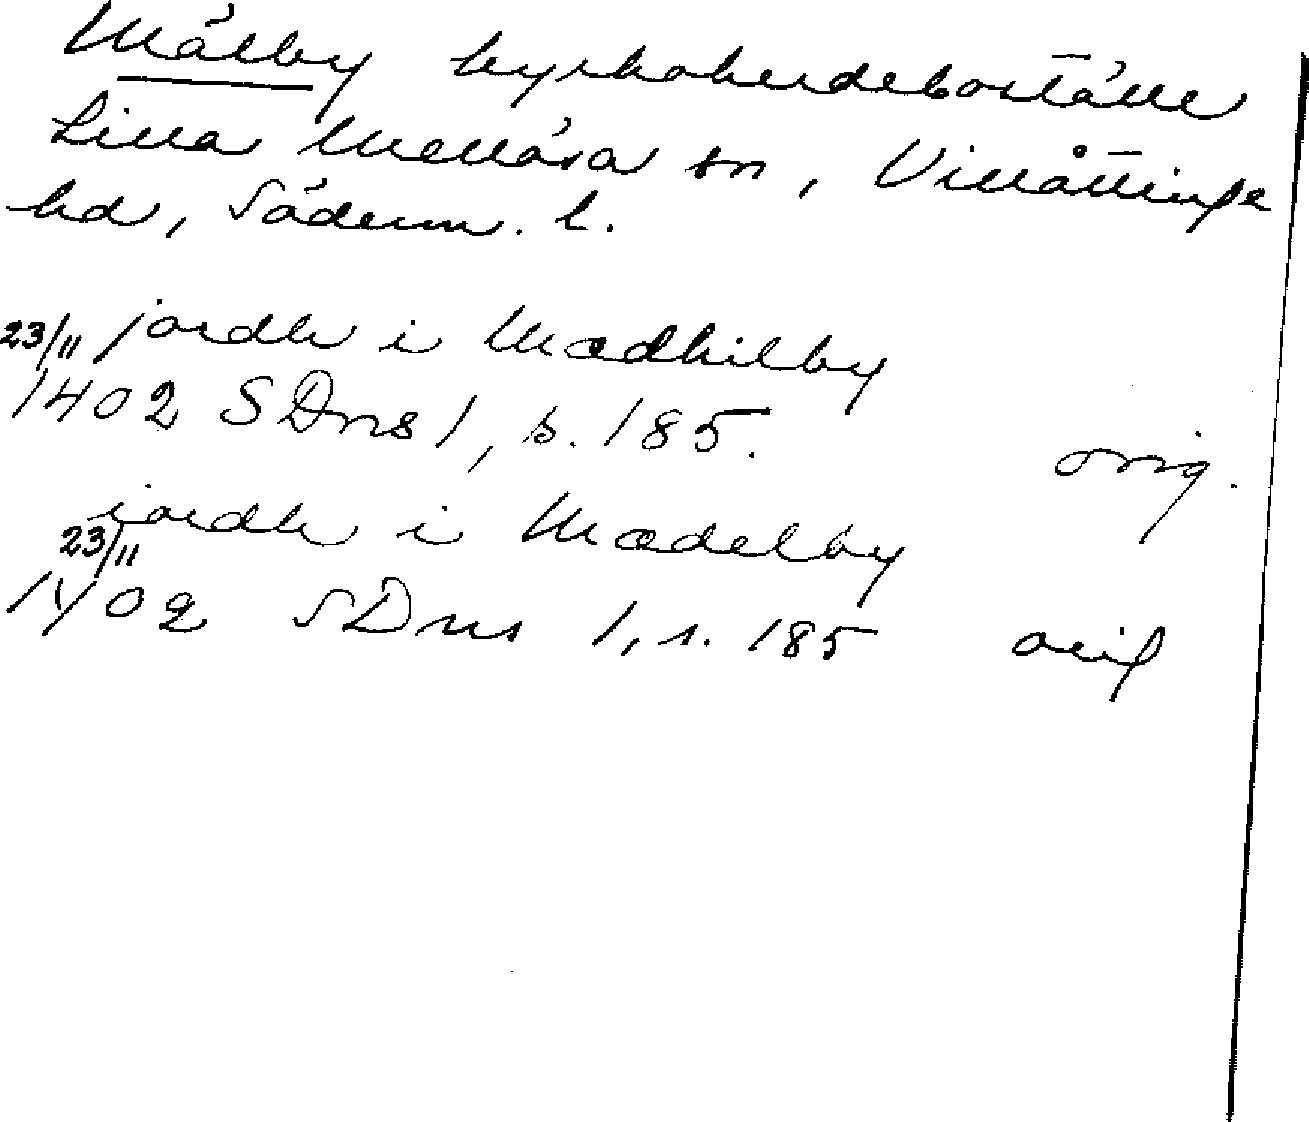 Mälby kyrkoherdeboställe
Lilla Mellösa sn, Villåttinge
hd, Söderm. l.
23/11 jordh i Mædhilby
1402 SDns 1, s. 185. orig.
iordh i Mædelby
23/11
1402 SDns 1, s. 185 orig